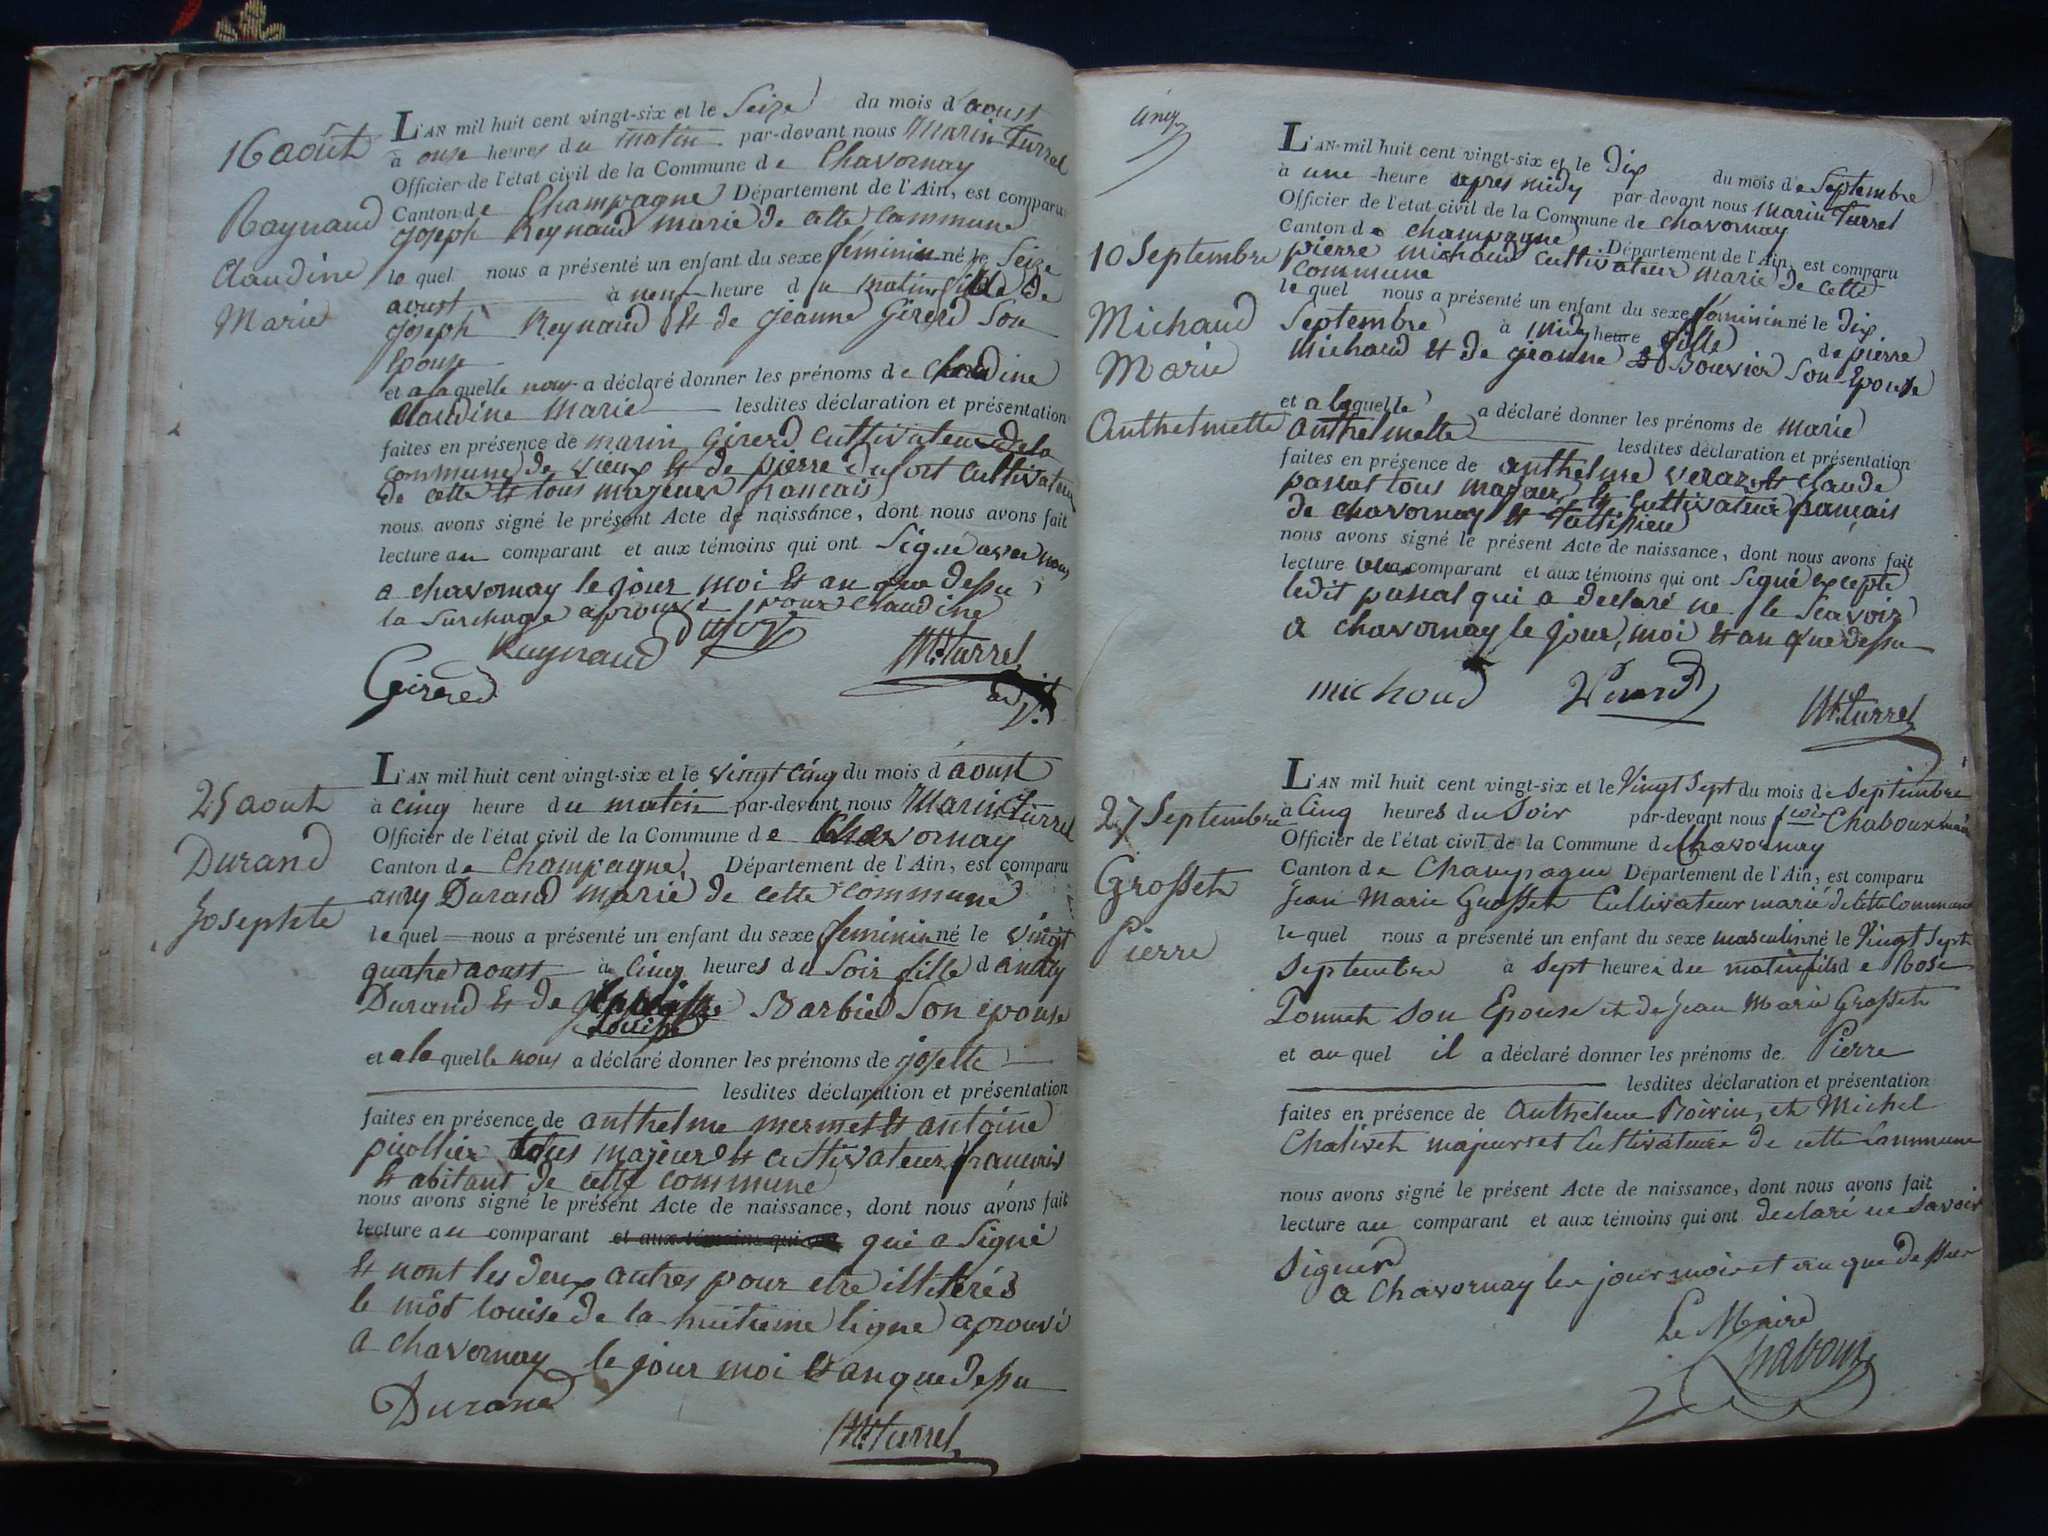 16 août
Raynaud
Claudine
Marie
L'AN mil huit cent vingt-six et le Seize du mois d'aoust
à onse heures du matin par-devant nous Marin Turrel
Officier de l'état civil de la Commune de Chavornay
Canton de Champagne Département de l'Ain, est comparu
joseph Reynaud marié de cette commune
le quel nous a présenté un enfant du sexe féminin né le Seize
aoust à neuf heure du matin fille de
joseph Reynaud et de jeanne Girerd Son
Epouse
et a la quelle nous a déclaré donner les prénoms de claudine
claudine marie lesdites déclaration et présentation
faites en présence de marin Girerd cultivateur de la
commune de vieux et de pierre dufort cultivateur
de cette et tous majeur francais
nous avons signé le présent Acte de naissance, dont nous avons fait
lecture au comparant et aux témoins qui ont Signé avec nous
a chavornay le jour moi et an que dessu
la Surchage aprouvé pour claudine
Raynaud
Girerd M. turrel
25 aout
Durand
Josephte
L'AN mil huit cent vingt-six et le vingt cinq du mois d'aoust
à cinq heure du matin par-devant nous Marin Turrel
Officier de l'état civil de la Commune de Chavornay
Canton de Champagne, Département de l'Ain, est comparu
anry Durand marié de cette commune
le quel nous a présenté un enfant du sexe feminin né le vingt
quatre aoust à cinq heures du Soir fille d'anry
Durand et de Barbier Son epouse
Louise
et a la quelle nous a déclaré donner les prénoms de josette
lesdites déclaration et présentation
faites en présence de anthelme mermet et antoine
picollier tous majeur et cultivateur francais
et abitant de cette commune
nous avons signé le présent Acte de naissance, dont nous avons fait
lecture au comparant et aux témoins qui ont qui a Signé
et nont les deux autres pour etre illiterés
le môt louise de la huitieme ligne aprouvé
a chavornay le jour moi et an que dessu
Durand
M. turrel
10 Septembre
Michaud
Marie
Anthelmette
L'AN mil huit cent vingt-six et le Dix du mois de Septembre
à une heure apres midy par-devant nous marin Turrel
Officier de l'état civil de la Commune de chavornay
Canton de champagne Département de l'Ain, est comparu
pierre michaud cultivateur marié de cette
commune
le quel nous a présenté un enfant du sexe féminin né le dix
Septembre à midy heure fille de pierre
michaud et de jeanne Bouvier Son Epouse
et a laquelle a déclaré donner les prénoms de marie
anthelmette lesdites déclaration et présentation
faites en présence de anthelme veraz et claude
pascal tous majeur et cultivateur francais
de chavornay et
nous avons signé le présent Acte de naissance, dont nous avons fait
lecture comparant et aux témoins qui ont Signé excepté
ledit pascal qui a declaré ne le Scavoir
a chavornay le jour, moi et an que dessu
michoud M. turrel
27 Septembre
Grosset
Pierre
L'AN mil huit cent vingt-six et le Vingt Sept du mois de Septembre
à Cinq heures du Soir par-devant nous Chaboux maire
Officier de l'état civil de la Commune de Chavornay
Canton de Champagne Département de l'Ain, est comparu
Jean Marie Grosset Cultivateur marié de cette Commune
le quel nous a présenté un enfant du sexe masculin né le Vingt Sept
Septembre à Sept heures du matin fils de Rose
Tonnet Son Epouse et de Jean Marie Grosset
et au quel il a déclaré donner les prénoms de Pierre
lesdites déclaration et présentation
faites en présence de Anthelme Boivin, et Michel
Chalivet majeurs et Cultivateurs de cette Commune
nous avons signé le présent Acte de naissance, dont nous avons fait
lecture au comparant et aux témoins qui ont declaré ne Savoir
Signer
a Chavornay les jour mois et an que dessus
Le Maire
Chaboux